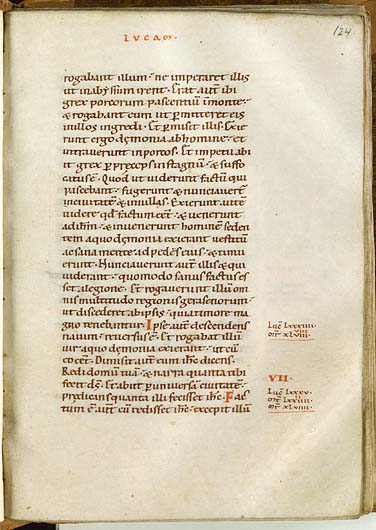 LUCAM.
124
rogabant illum· ne imperaret illis
ut inabyssum irent. Erat aut ibi
grex porcorum pascentiū īmonte·
& rogabant eum ut permitteret eis
inillos ingredi. Et permisit illis. Exie
runt ergo dęmonia abhomine· et
intraverunt inporcos. Et impetu abi
it grex per pręceps instagnū· & suffo
catus ē· Quod ut viderunt factū qui
pascebant· fugerunt & nunciaverē
incivitatē & invillas. Exierunt autē
videre qd factum eēt· & venerunt
ad ihm· & invenerunt hominē seden
tem aquo dęmonia exierant vestitū
ac sana mente· ad pedes eius· & timu
erunt. Nunciaverunt aut illis & qui
viderant· quomodo sanus factus es
set alegione. Et rogaverunt illum om
nis multitudo regionis gerasenorum·
ut discederet abipsis· quia timore ma
gno tenebantur. Ipse aut descendens
navim· reversus ē· Et rogabat illum
vir aquo dęmonia exierant· ut cū
eo eēt. Dimisit aut eum ihc dicens.
Redi domū tuā· & narra quanta tibi
fecit ds. Et abiit per universā civitatē·
prędicans quanta illi fecisset ihc· Fac
tum ē aut cum redisset ihc· excepit illū
Luc LXXXIIII
VIII
mr XLVIII
VII.
Luc LXXXV·
II
mt LXXIIII
mr XLVIIII